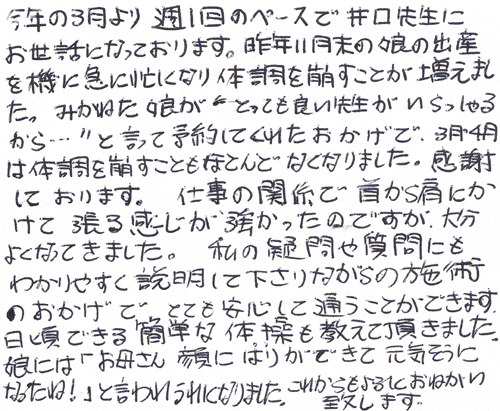 今年の3月より週1回のペースで井口先生に
お世話になっております。昨年11月末の娘の出産
を機に急に忙しくなり体調を崩すことが増えまし
た。みかねた娘が“とっても良い先生がいらっしゃる
から…”と言って予約してくれたおかげで、3月4月
は体調を崩すこともほとんどなくなりました。感謝
しております。仕事の関係で首から肩にか
けて張る感じが強かったのですが、大分
よくなってきました。私の疑問や質問にも
わかりやすく説明して下さりながらの施術
のおかげで、とても安心して通うことができます。
日頃できる簡単な体操も教えて頂きました。
娘には「お母さん顔にはりができて元気そうに
なったね！」と言われうれしくなりました。これからもよろしくおねがい
致します。